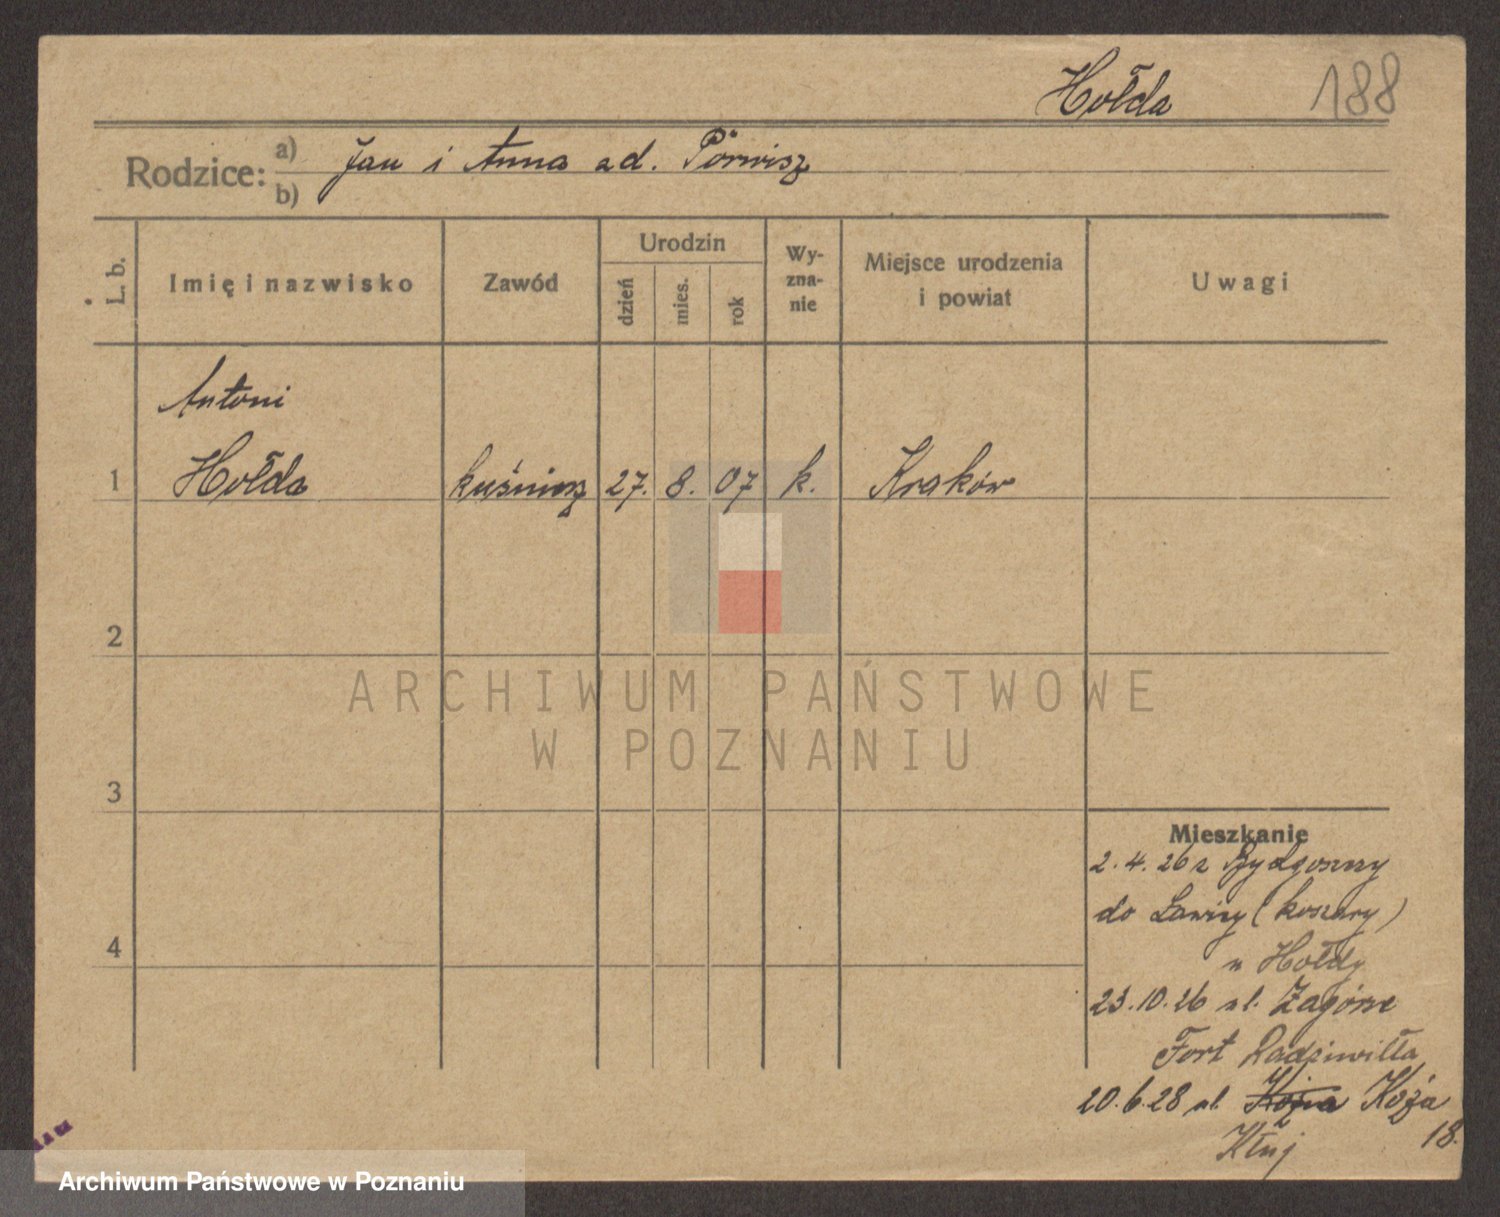 Hołda 188
Rodzice: a) Jan i Anna zd. Pörwisz
b)
L. b.
Imię i nazwisko
Zawód
Urodzin
dzień
mies.
rok
Wy-
zna-
nie
Miejsce urodzenia
i powiat
Uwagi
Antoni
1 Hołda kuśnierz 27. 8. 07 k. Kraków
2
ARCHIWUM PAŃSTWOWE
W POZNANIU
3
Mieszkanie
2.4.26 z Bydgoszczy
do Ławicy (koszary)
4
u Hołdy
23.10.26 ul. Zagórze
Fort Radziwiłła
20.6.28 ul. Koza Koźa
18.
Archiwum Państwowe w Poznaniu